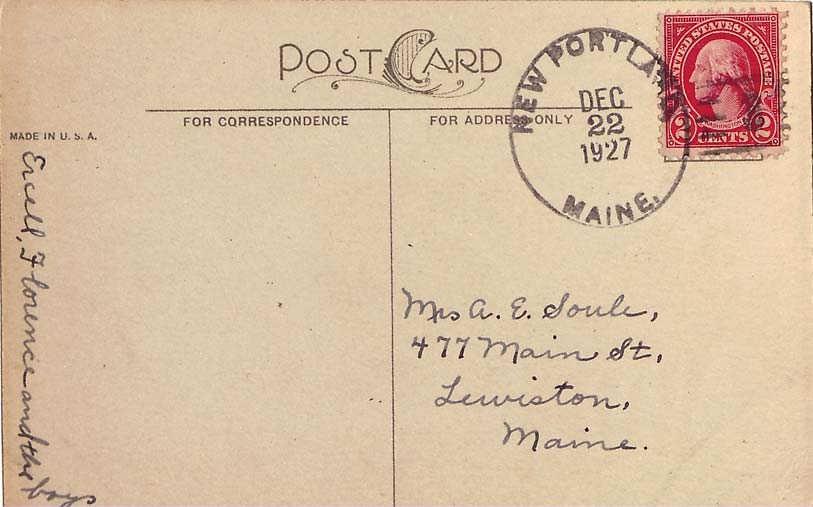 POST CARD
FOR CORRESPONDENCE
FOR ADDRESS ONLY
MADE IN U.S.A.
NEW PORTLAND
DEC
22
1927
MAINE.
UNITED STATES POSTAGE
WASHINGTON
2 CENTS 2
Mrs A. E. Soule,
477 Main St,
Lewiston,
Maine.
Ercell, Florence and the boys